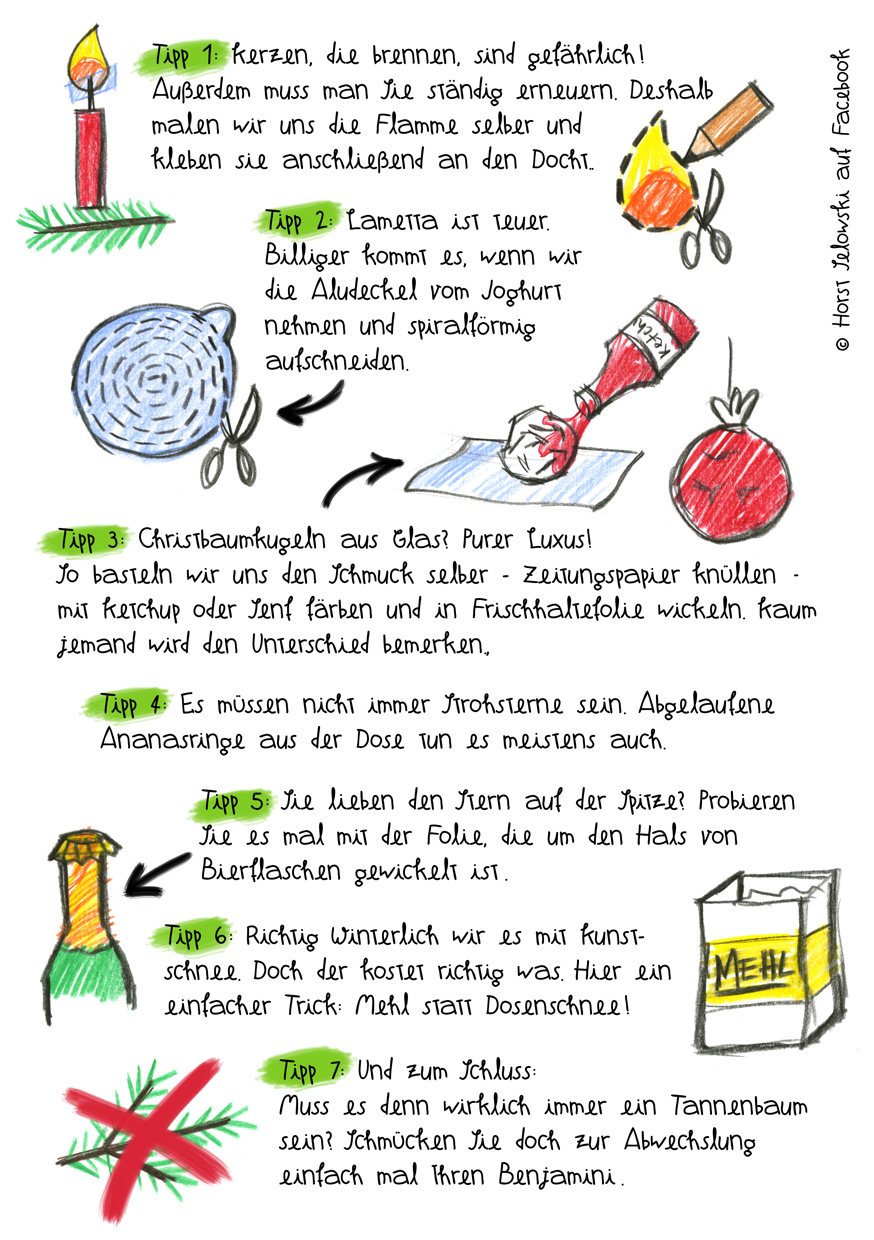 Tipp 1: Kerzen, die brennen, sind gefährlich!
Außerdem muss man Sie ständig erneuern. Deshalb
malen wir uns die Flamme selber und
kleben sie anschließend an den Docht..
Tipp 2: Lametta ist teuer.
Billiger kommt es, wenn wir
die Aludeckel vom Joghurt
nehmen und spiralförmig
aufschneiden.
Ketch
Tipp 3: Christbaumkugeln aus Glas? Purer Luxus!
So basteln wir uns den Schmuck selber - Zeitungspapier knüllen -
mit Ketchup oder Senf färben und in Frischhaltefolie wickeln. Kaum
jemand wird den Unterschied bemerken.,
Tipp 4: Es müssen nicht immer Strohsterne sein. Abgelaufene
Ananasringe aus der Dose tun es meistens auch.
Tipp 5: Sie lieben den Stern auf der Spitze? Probieren
Sie es mal mit der Folie, die um den Hals von
Bierflaschen gewickelt ist.
Tipp 6: Richtig Winterlich wir es mit Kunst-
schnee. Doch der kostet richtig was. Hier ein
einfacher Trick: Mehl statt Dosenschnee!
MEHL
Tipp 7: Und zum Schluss:
Muss es denn wirklich immer ein Tannenbaum
sein? Schmücken Sie doch zur Abwechslung
einfach mal Ihren Benjamini.
© Horst Jelowski auf Facebook